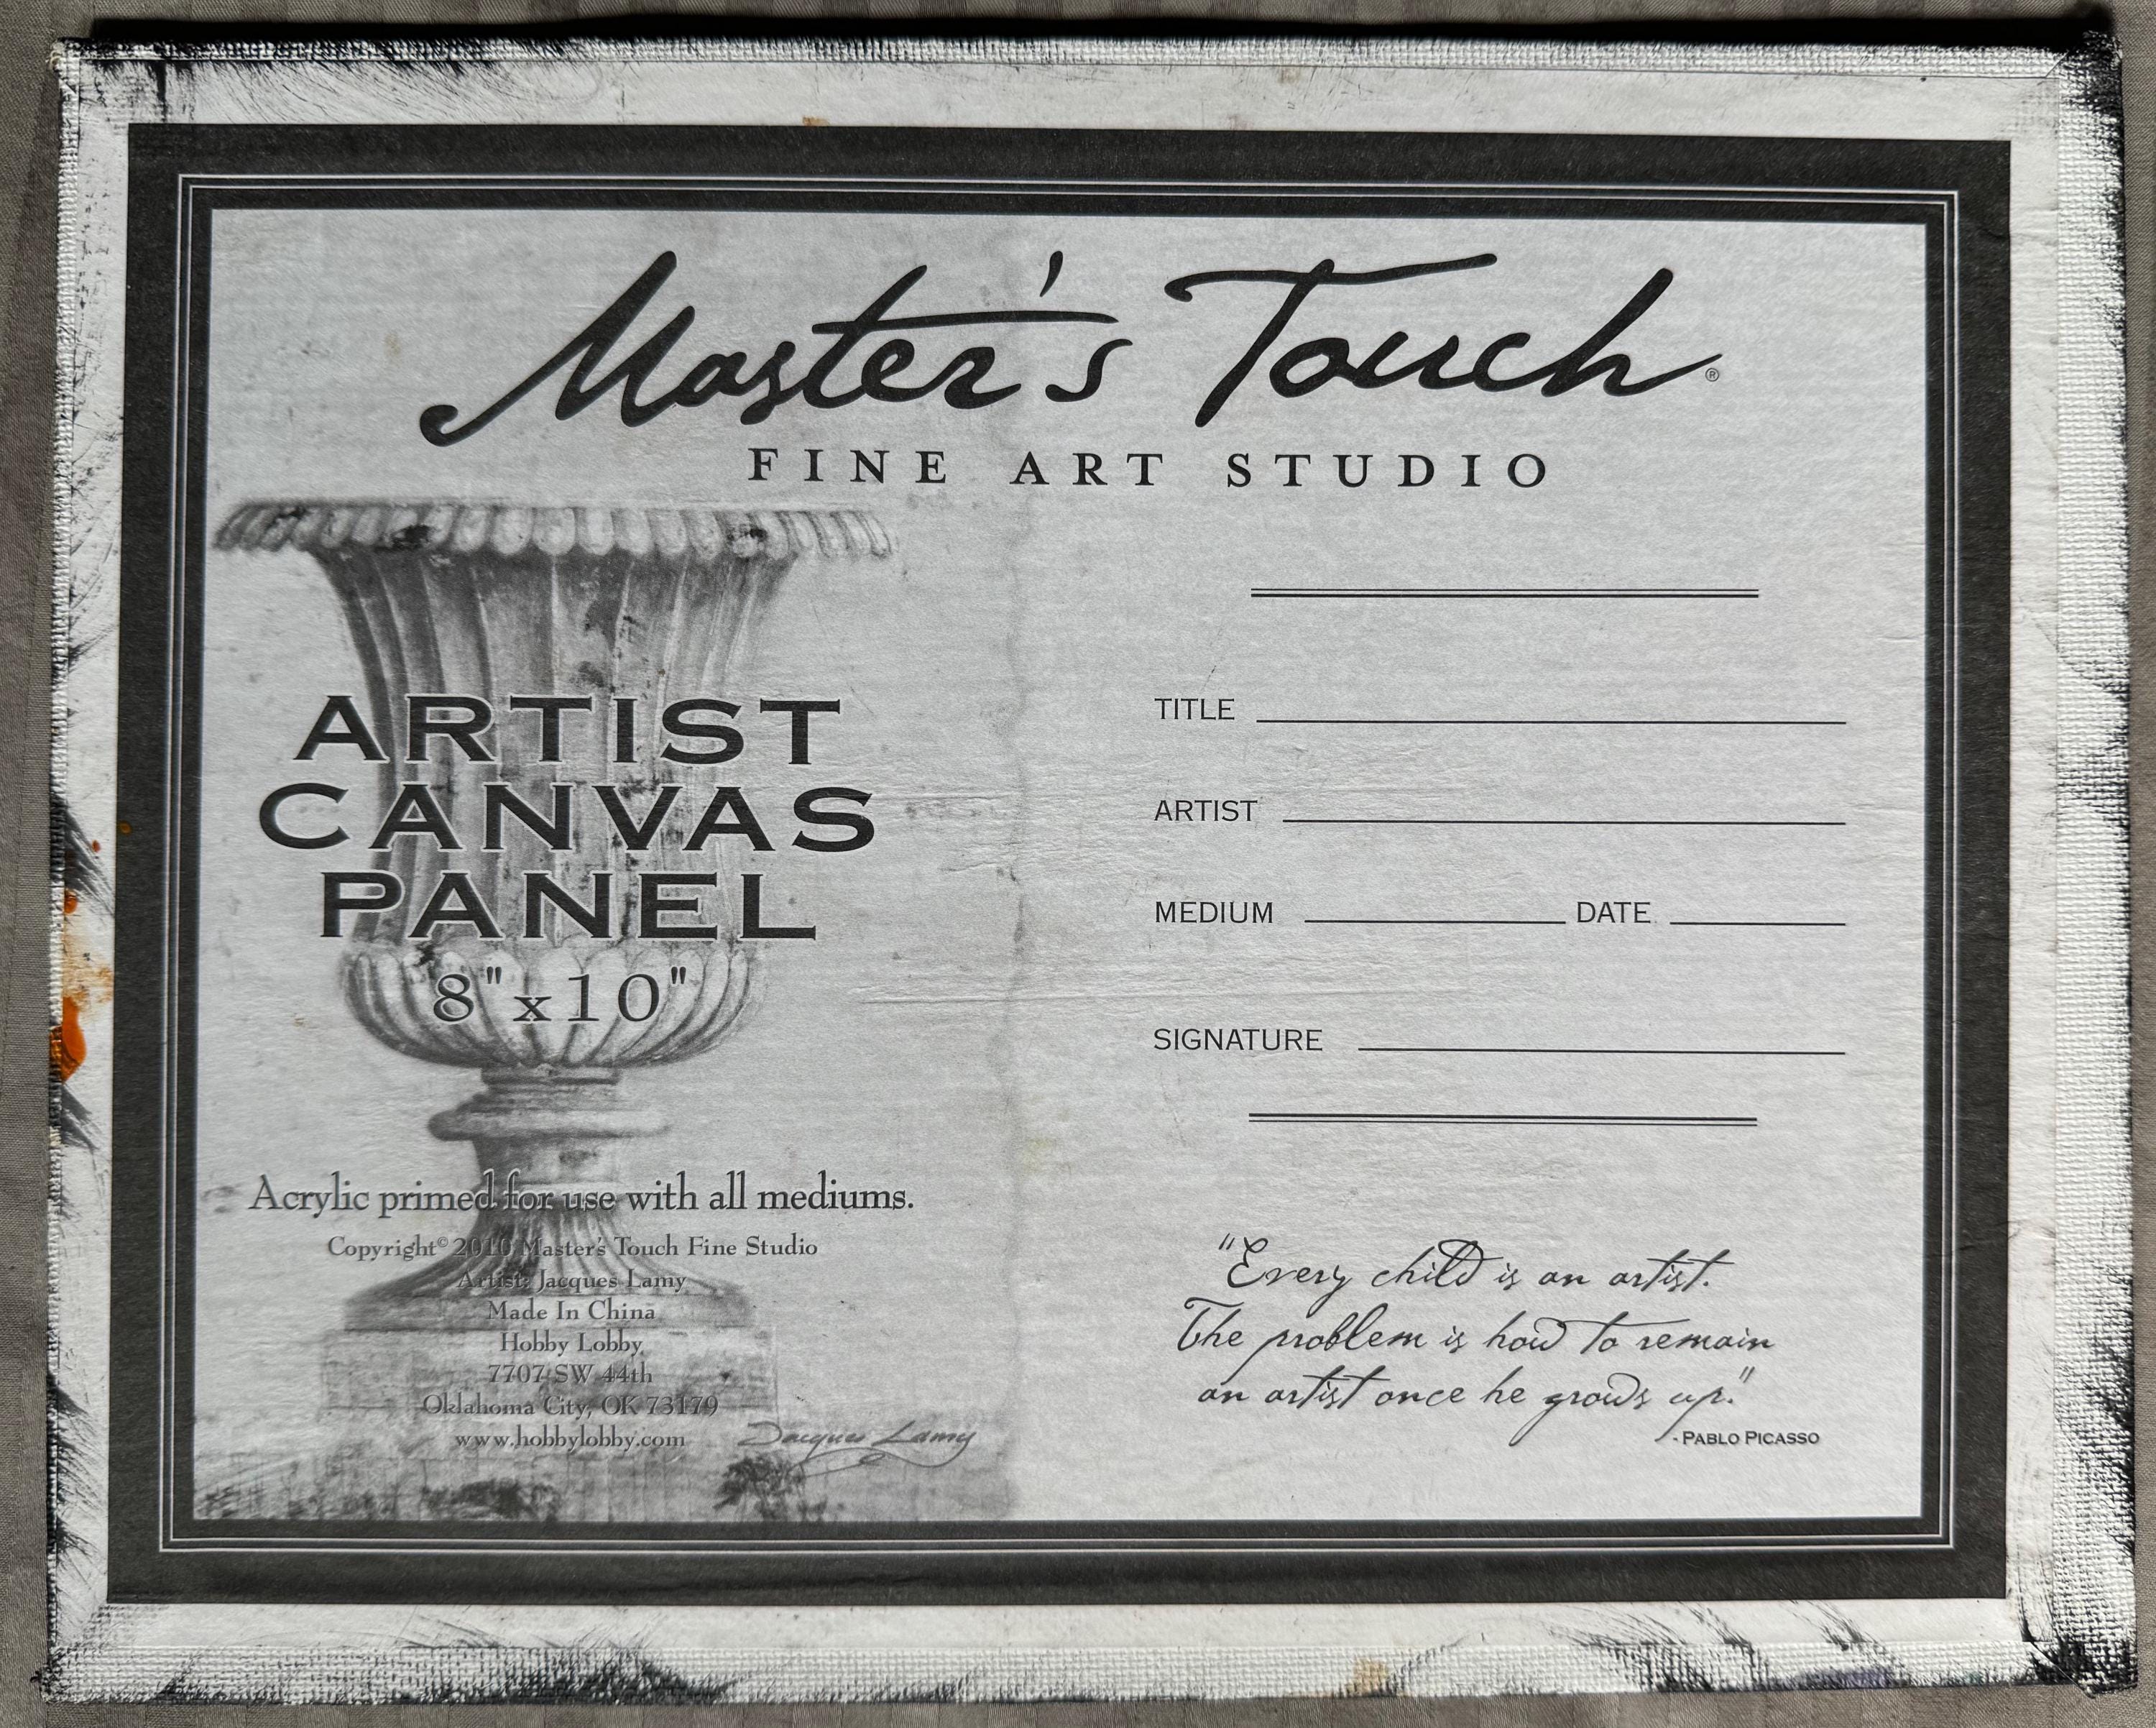 Master's Touch®
FINE ART STUDIO
ARTIST
CANVAS
PANEL
8"x10"
Acrylic primed for use with all mediums.
Copyright© 2010 Master's Touch Fine Studio
Artist: Jacques Lamy
Made In China
Hobby Lobby
7707 SW 44th
Oklahoma City, OK 73179
www.hobbylobby.com
Jacques Lamy
TITLE
ARTIST
MEDIUM DATE
SIGNATURE
"Every child is an artist.
The problem is how to remain
an artist once he grows up."
-PABLO PICASSO